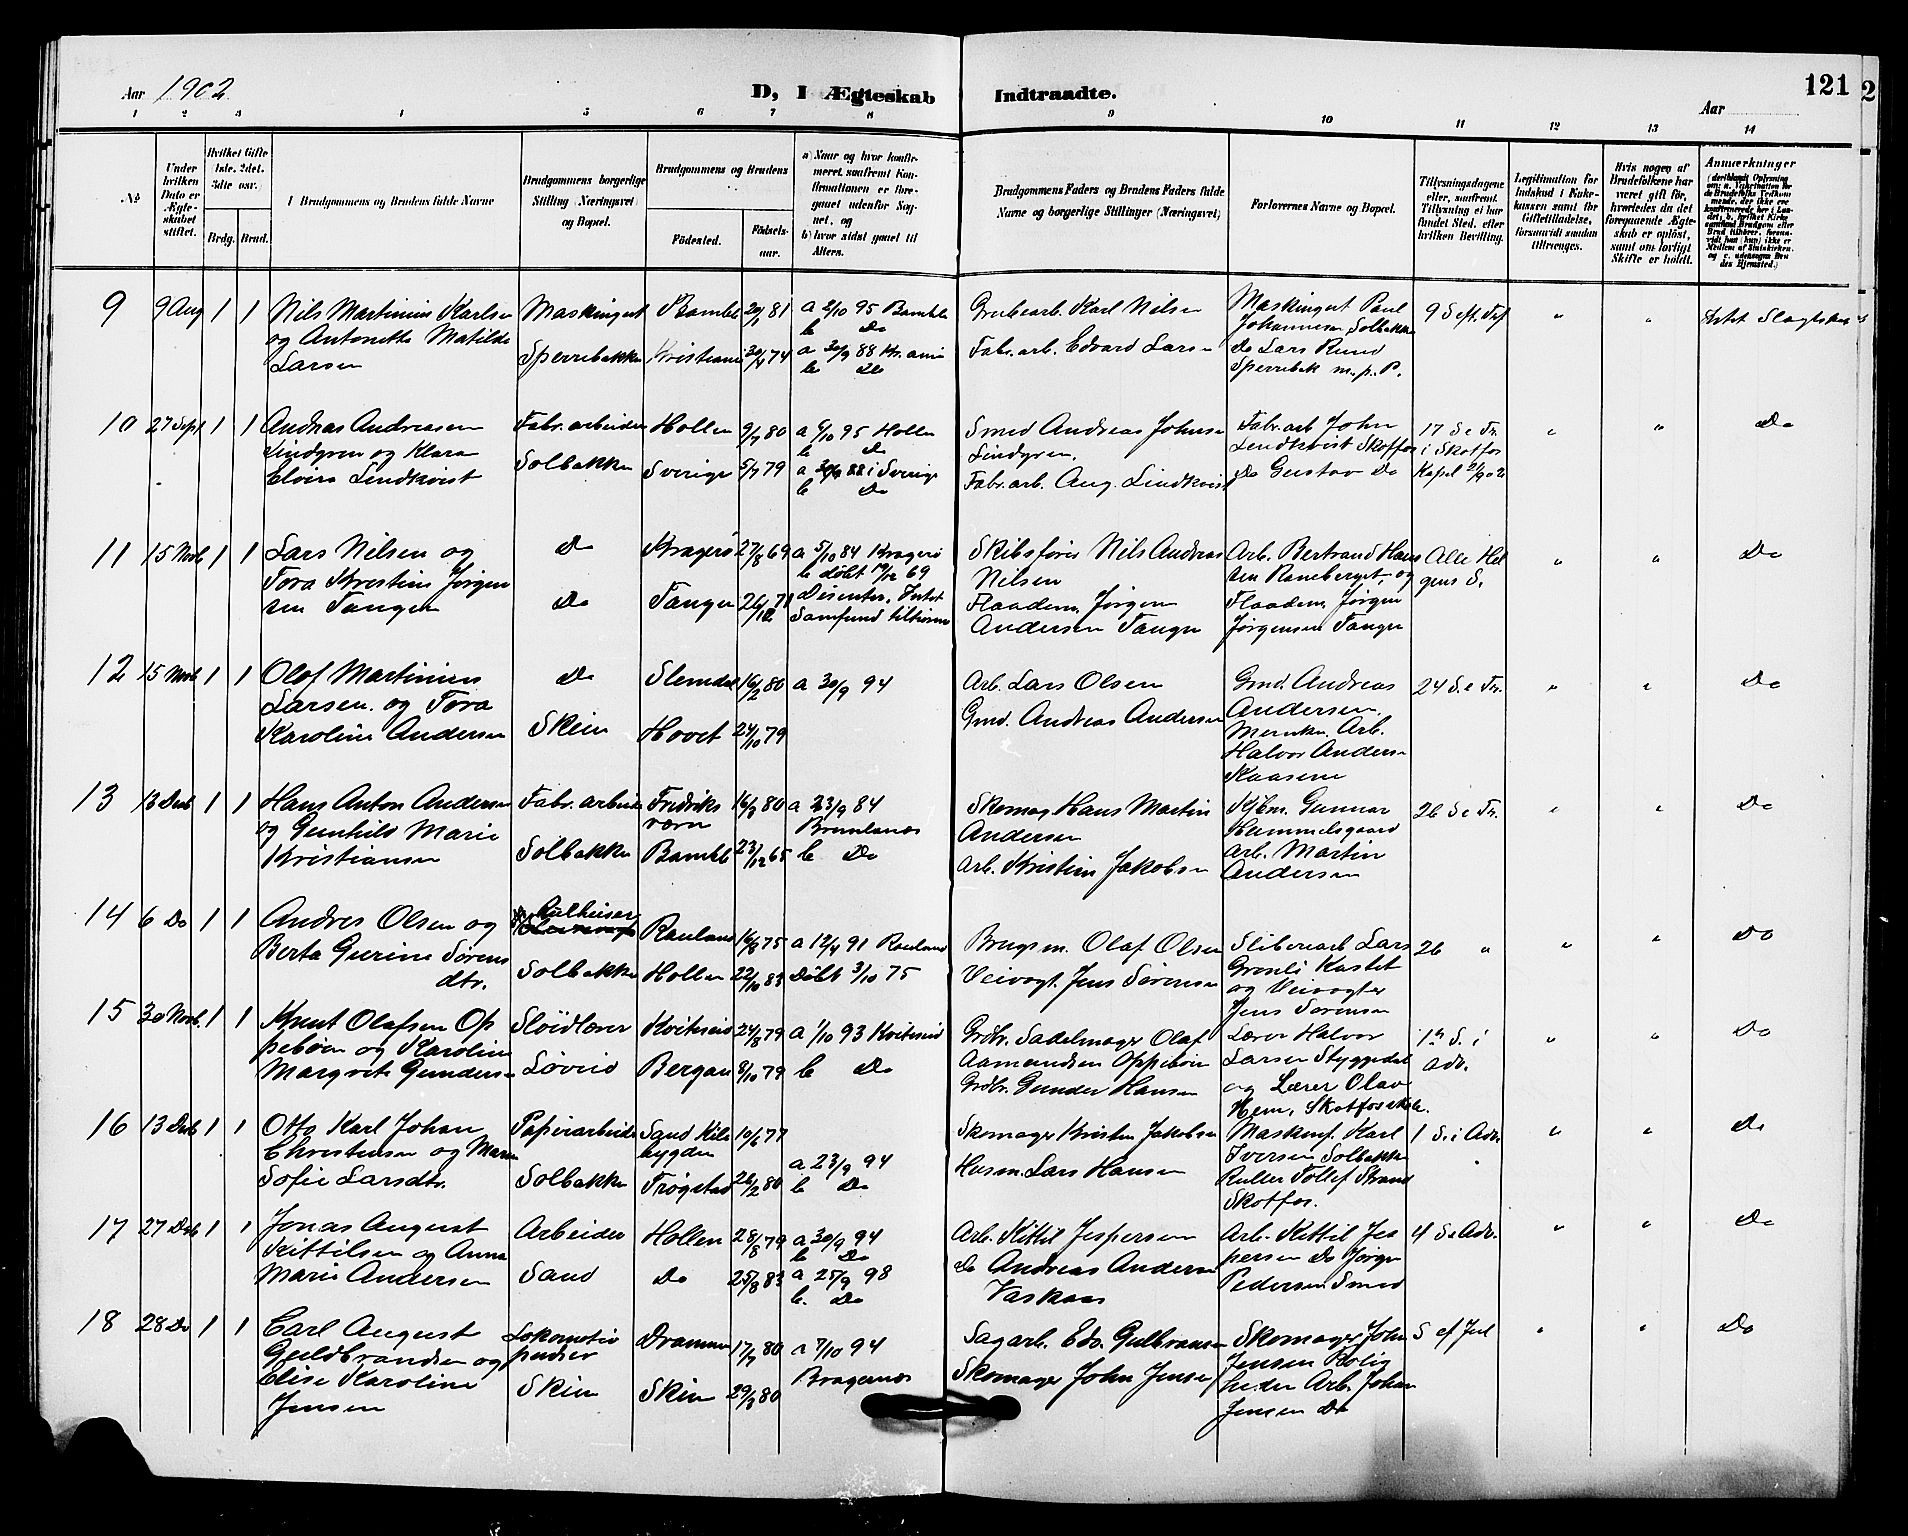 Aar 1902
D, I Ægteskab Indtraadte.
Aar
121
1 2 3 4 5 6 7 8 9 10 11 12 13 14
№
Under hvilken Dato er Ægteskabet stiftet.
Hvilket Gifte 1ste. 2det. 3die osv.
Brdg. Brud.
I Brudgommens og Brudens fulde Navne
Brudgommens borgerlige Stilling (Næringsvei) og Bopæl.
Brudgommens og Brudens
Fødested.
Fødsels-aar.
a) Naar og hvor konfirmeret, saafremt Konfirmationen er foregaaet udenfor Sognet, og
b) hvor sidst gaaet til Alters.
Brudgommens Faders og Brudens Faders fulde Navne og borgerlige Stillinger (Næringsvei)
Forlovernes Navne og Bopæl.
Tillysningsdagene eller, saafremt Tillysning ei har fundet Sted, efter hvilken Bevilling.
Legitimation for Indskud i Enkekassen samt for Giftetilladelse, forsaavidt saadan tiltrænges.
Hvis nogen af Brudefolkene har været gift før, hvorledes da det foregaaende Ægteskab er opløst, samt om lovligt Skifte er holdt.
Anmærkninger
9 9 Aug 1 1 Nils Martinius Karlsen Maskingut Bamble 20/1 81 a 2/10 95 Bamble Grubearb. Karl Nilsen Maskingut Paul 9 S eft. Tref " " Intet Slagtskab
og Antonette Matilde b Do Johannesen, Solbakke
Larsen Sperrebakke Kristiania 30/4 74 a 30/9 88 Kr.ania Fabr. arb. Edvard Larsen Do Lars Rund
b Do Sperrebak m. p. P.
10 27 Sept 1 1 Andreas Andreasen Fabr. arbeider Hollen 9/7 80 a 6/10 95 Hollen Smed Andreas Johnsen Fabr. arb John 17 S e Tr. " " Do
Lindgren og Klara b Do Lindgren. Lindkvist Skotfos i Skotfos
Elvira Lindkvist Solbakke Sverige 5/7 79 a 88 i Sverige Fabr. arb. Aug. Lindkvist Do Gustav Do Kapel 21/9 02
b Do
11 15 Novb 1 1 Lars Nilsen og Do Kragerø 27/8 69 a 5/10 84 Kragerø Skibsfører Nils Andreas Arb. Bertrand Han Alle Hel " " Do
Tora Kristine Jørgen b døbt 19/12 69 Nilsen sen Raneberget, og gens S.
sen Tangen Do Tangen 26/12 71 Disenter, Intet Flaadem, Jørgen Flaadem, Jørgen
Samfund tilhørende Andersen Tangen Jørgensen Tangen
12 15 Novb 1 1 Olaf Martinius Do Slemdal 16/2 80 a 30/9 94 Arb. Lars Olsen Gmd. Andreas 24 S. e Tr. " " Do
Larsen. og Tora Gmd. Andreas Andersen Andersen,
Karoline Andersen Skien Hovet 24/10 79 Arb.
Halvor Andersen
Kaasene
13 13 Decb 1 1 Hans Anton Andersen Fabr. arbeider Fredriks 16/9 80 a 23/9 84 Skomag Hans Martin Kjbm. Gunnar 26 S e Tr. " " Do
og Gunhild Marie værn Brunlanes Andersen Hummelsgaard
Kristiansen Solbakke Bamble 23/12 65 b Do Arb. Kristian Jakobsen Arb. Martin
Andersen
14 6 Do 1 1 Andres Olsen og Rauland 16/8 75 a 12/4 91 Rauland Brugsm. Olaf Olsen Sliberiarb Lars 26 " " " Do
Berta Gurine Sørens Solbakke Hollen 22/10 83 Døbt 3/10 75 Veivogt. Jens Sørensen Kastet
dtr. og Veivogter
Jens Sørensen
15 30 Novb. 1 1 Knut Olafsen Op Sløidlærer Kviteseid 24/8 79 a 1/10 93 Kviteseid Grdbr. Sadelmager Olaf Lærer Halvor 1ste S. i " " Do
pebøen og Karoline Aamundsen Oppebøen Larsen Styggedal Adv.
Margrete Gundersen Løveid Bergan 8/10 79 b Do Grdbr. Gunder Hansen og Lærer Olav
Hem, Skotfos skole.
16 13 Decb 1 1 Otto Karl Johan Papirarbeider Sand Kile 19/6 77 Skomager Kristen Jakobsen Maskinf. Karl 1 S. i Adv. " " Do
Christensen og Maren bygden a 23/9 94 Iversen Solbakke
Sofie Larsdtr. Solbakke Trøgstad 26/2 80 b Do Husm. Lars Hansen Ruller Tollef Strand
Skotfos.
17 27 Decb 1 1 Jonas August Arbeider Hollen 28/8 79 a 30/9 94 Arb. Kittil Jespersen Arb. Kittil Jes 4 S e Adv. " " Do
Kittilsen og Anna b Do persen Do Jørgen
Marie Andersen Sand Do 25/8 83 a 25/9 98 Do Andreas Andersen Pedersen Smed
b. Do Vaskaas
18 28 Do 1 1 Carl August Lokomotiv Drammen 17/7 80 a 7/10 94 Sagarb. Edv. Gulbransen Skomager John S ef Jul " " Do
Guldbrandsen og pudser Bragernes Jensen Rolig
Elise Karoline Skien Skien 29/3 80 Skomager John Jensen heden Arb. Johan
Jensen Jensen Do